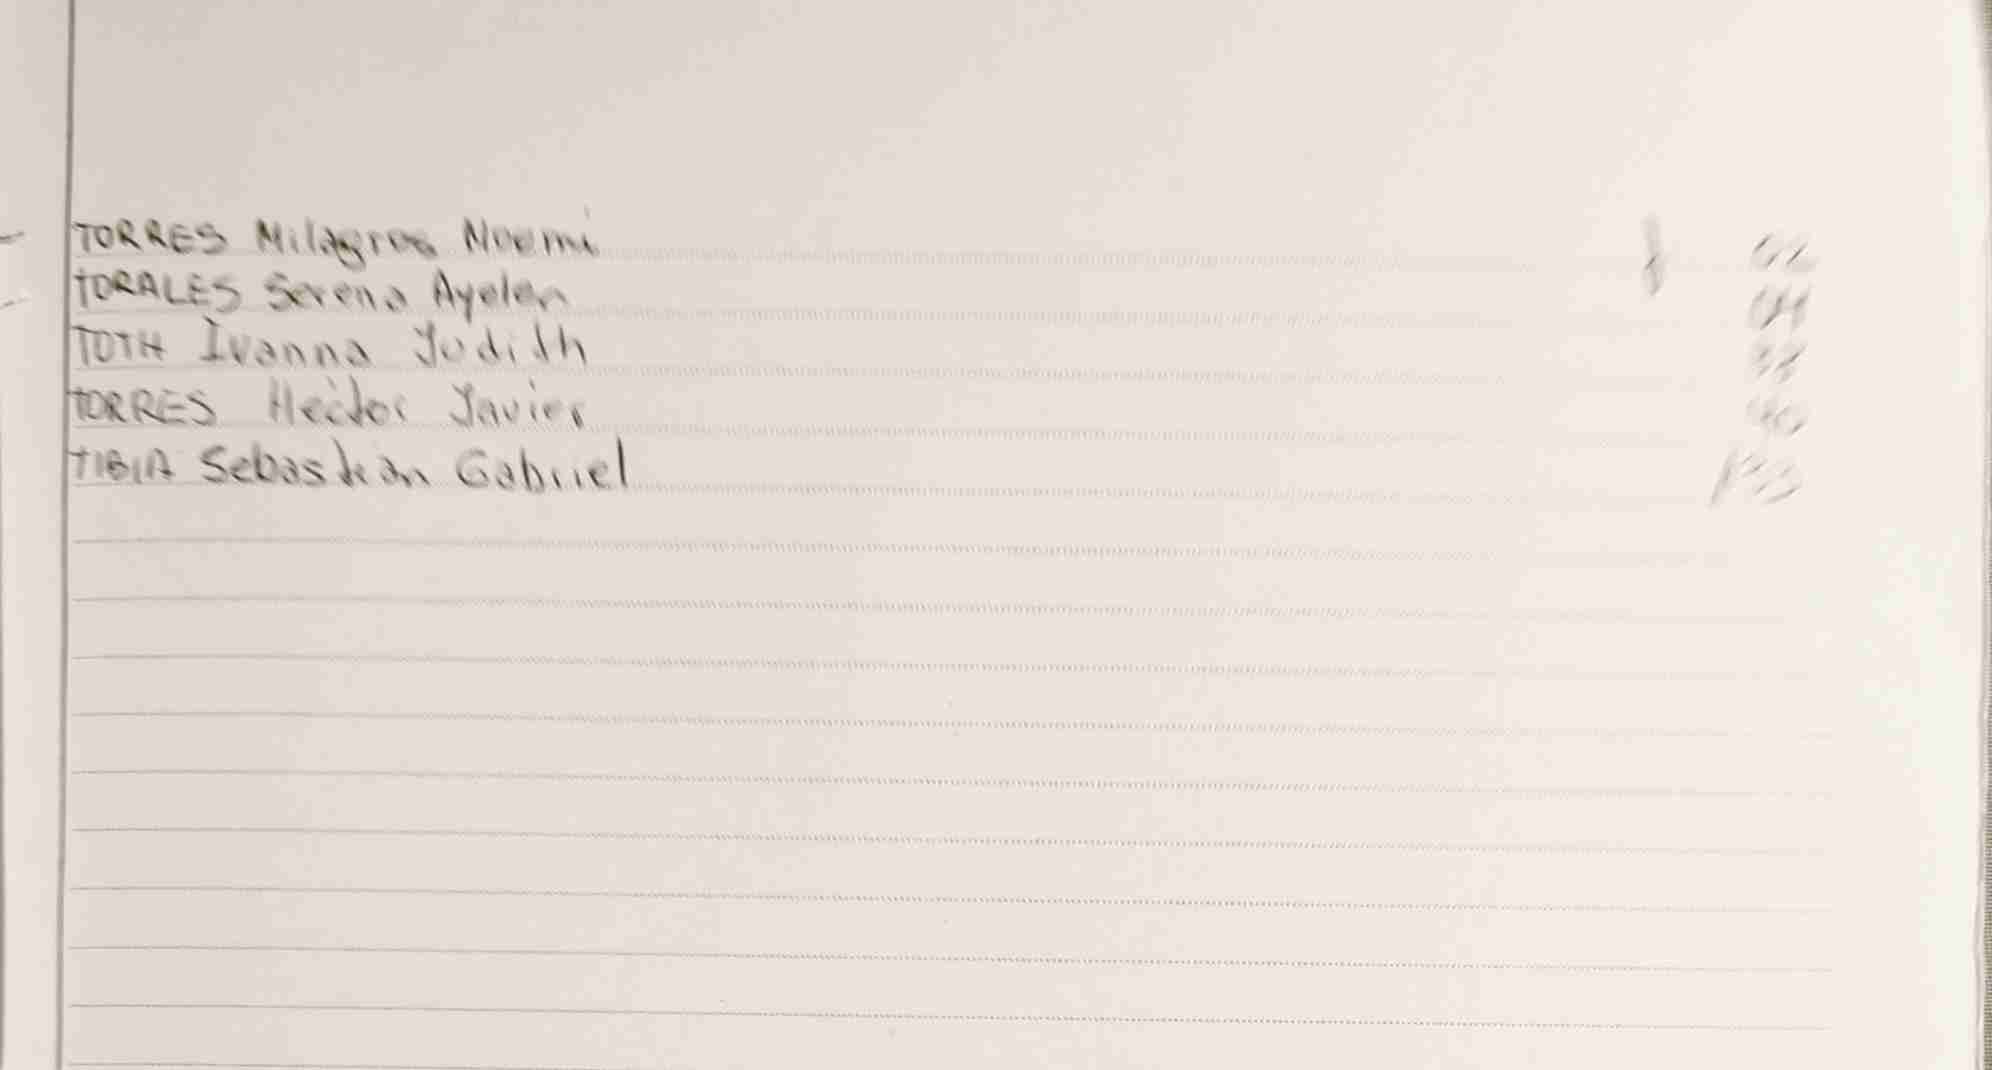 TORRES Milagros Noemi
TORALES Serena Ayelen
TOTH Ivanna Judith
TORRES Hector Javier
TIBIA Sebastian Gabriel